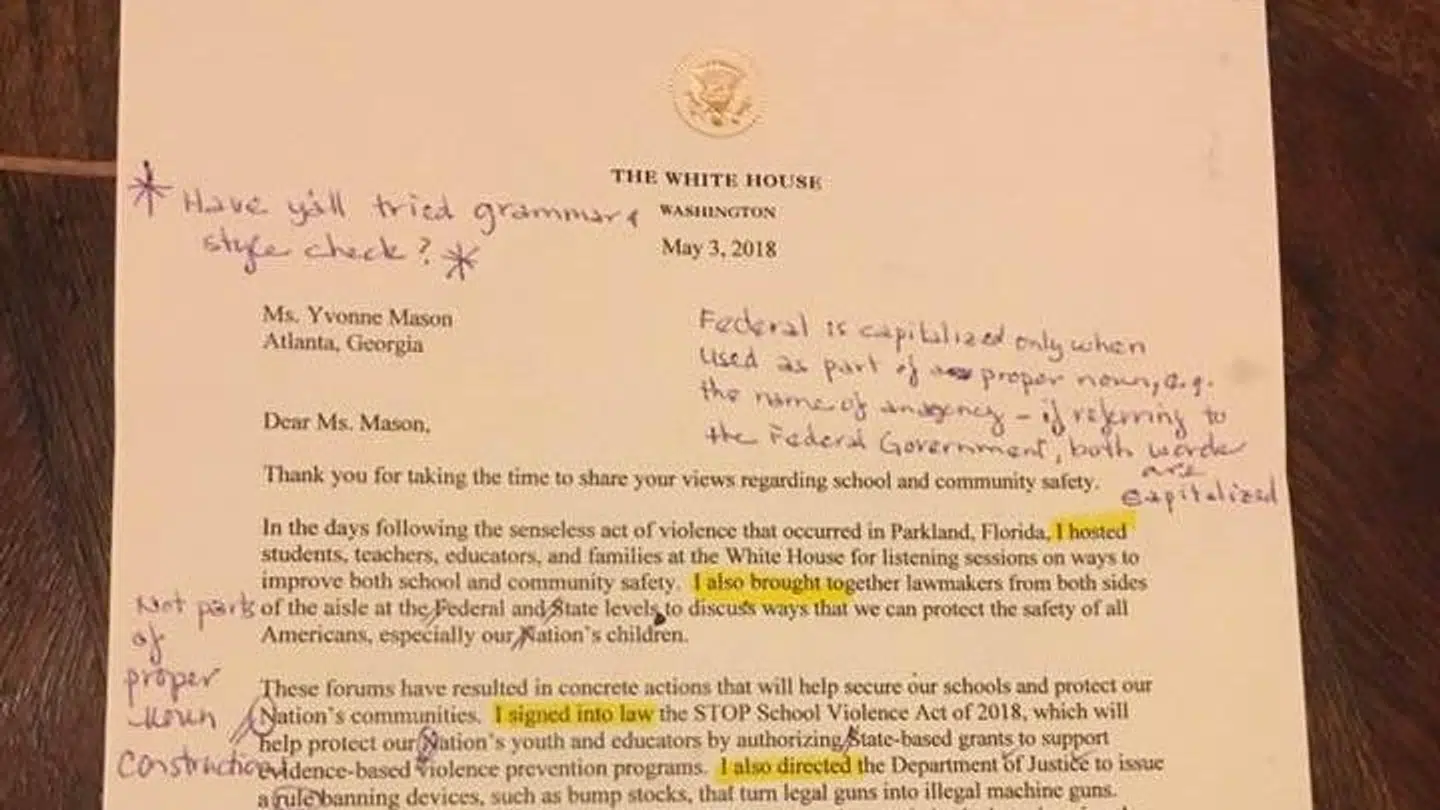 THE WHITE HOUSE
WASHINGTON
May 3, 2018
* Have y'all tried grammar &
style check? *
Ms. Yvonne Mason
Atlanta, Georgia
Federal is capitalized only when
used as part of proper noun, e.g.
the name of an agency – if referring to
the Federal Government, both words
are
capitalized
Dear Ms. Mason,
Thank you for taking the time to share your views regarding school and community safety.
In the days following the senseless act of violence that occurred in Parkland, Florida, I hosted
students, teachers, educators, and families at the White House for listening sessions on ways to
improve both school and community safety. I also brought together lawmakers from both sides
of the aisle at the Federal and State levels to discuss ways that we can protect the safety of all
Americans, especially our Nation's children.
Not parts
of
proper
noun
construction
These forums have resulted in concrete actions that will help secure our schools and protect our
Nation's communities. I signed into law the STOP School Violence Act of 2018, which will
help protect our Nation's youth and educators by authorizing State-based grants to support
evidence-based violence prevention programs. I also directed the Department of Justice to issue
a rule banning devices, such as bump stocks, that turn legal guns into illegal machine guns.